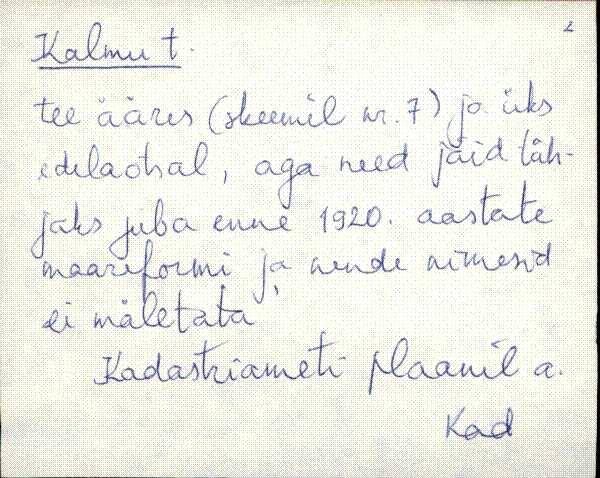 2
Kalmu t.
tee ääres (skeemil nr. 7) ja üks
edelaotsal, aga need jäid tüh-
jaks juba enne 1920. aastate
maareformi ja nende nimesid
ei mäletata
Kadastriameti plaanil a.
Kad